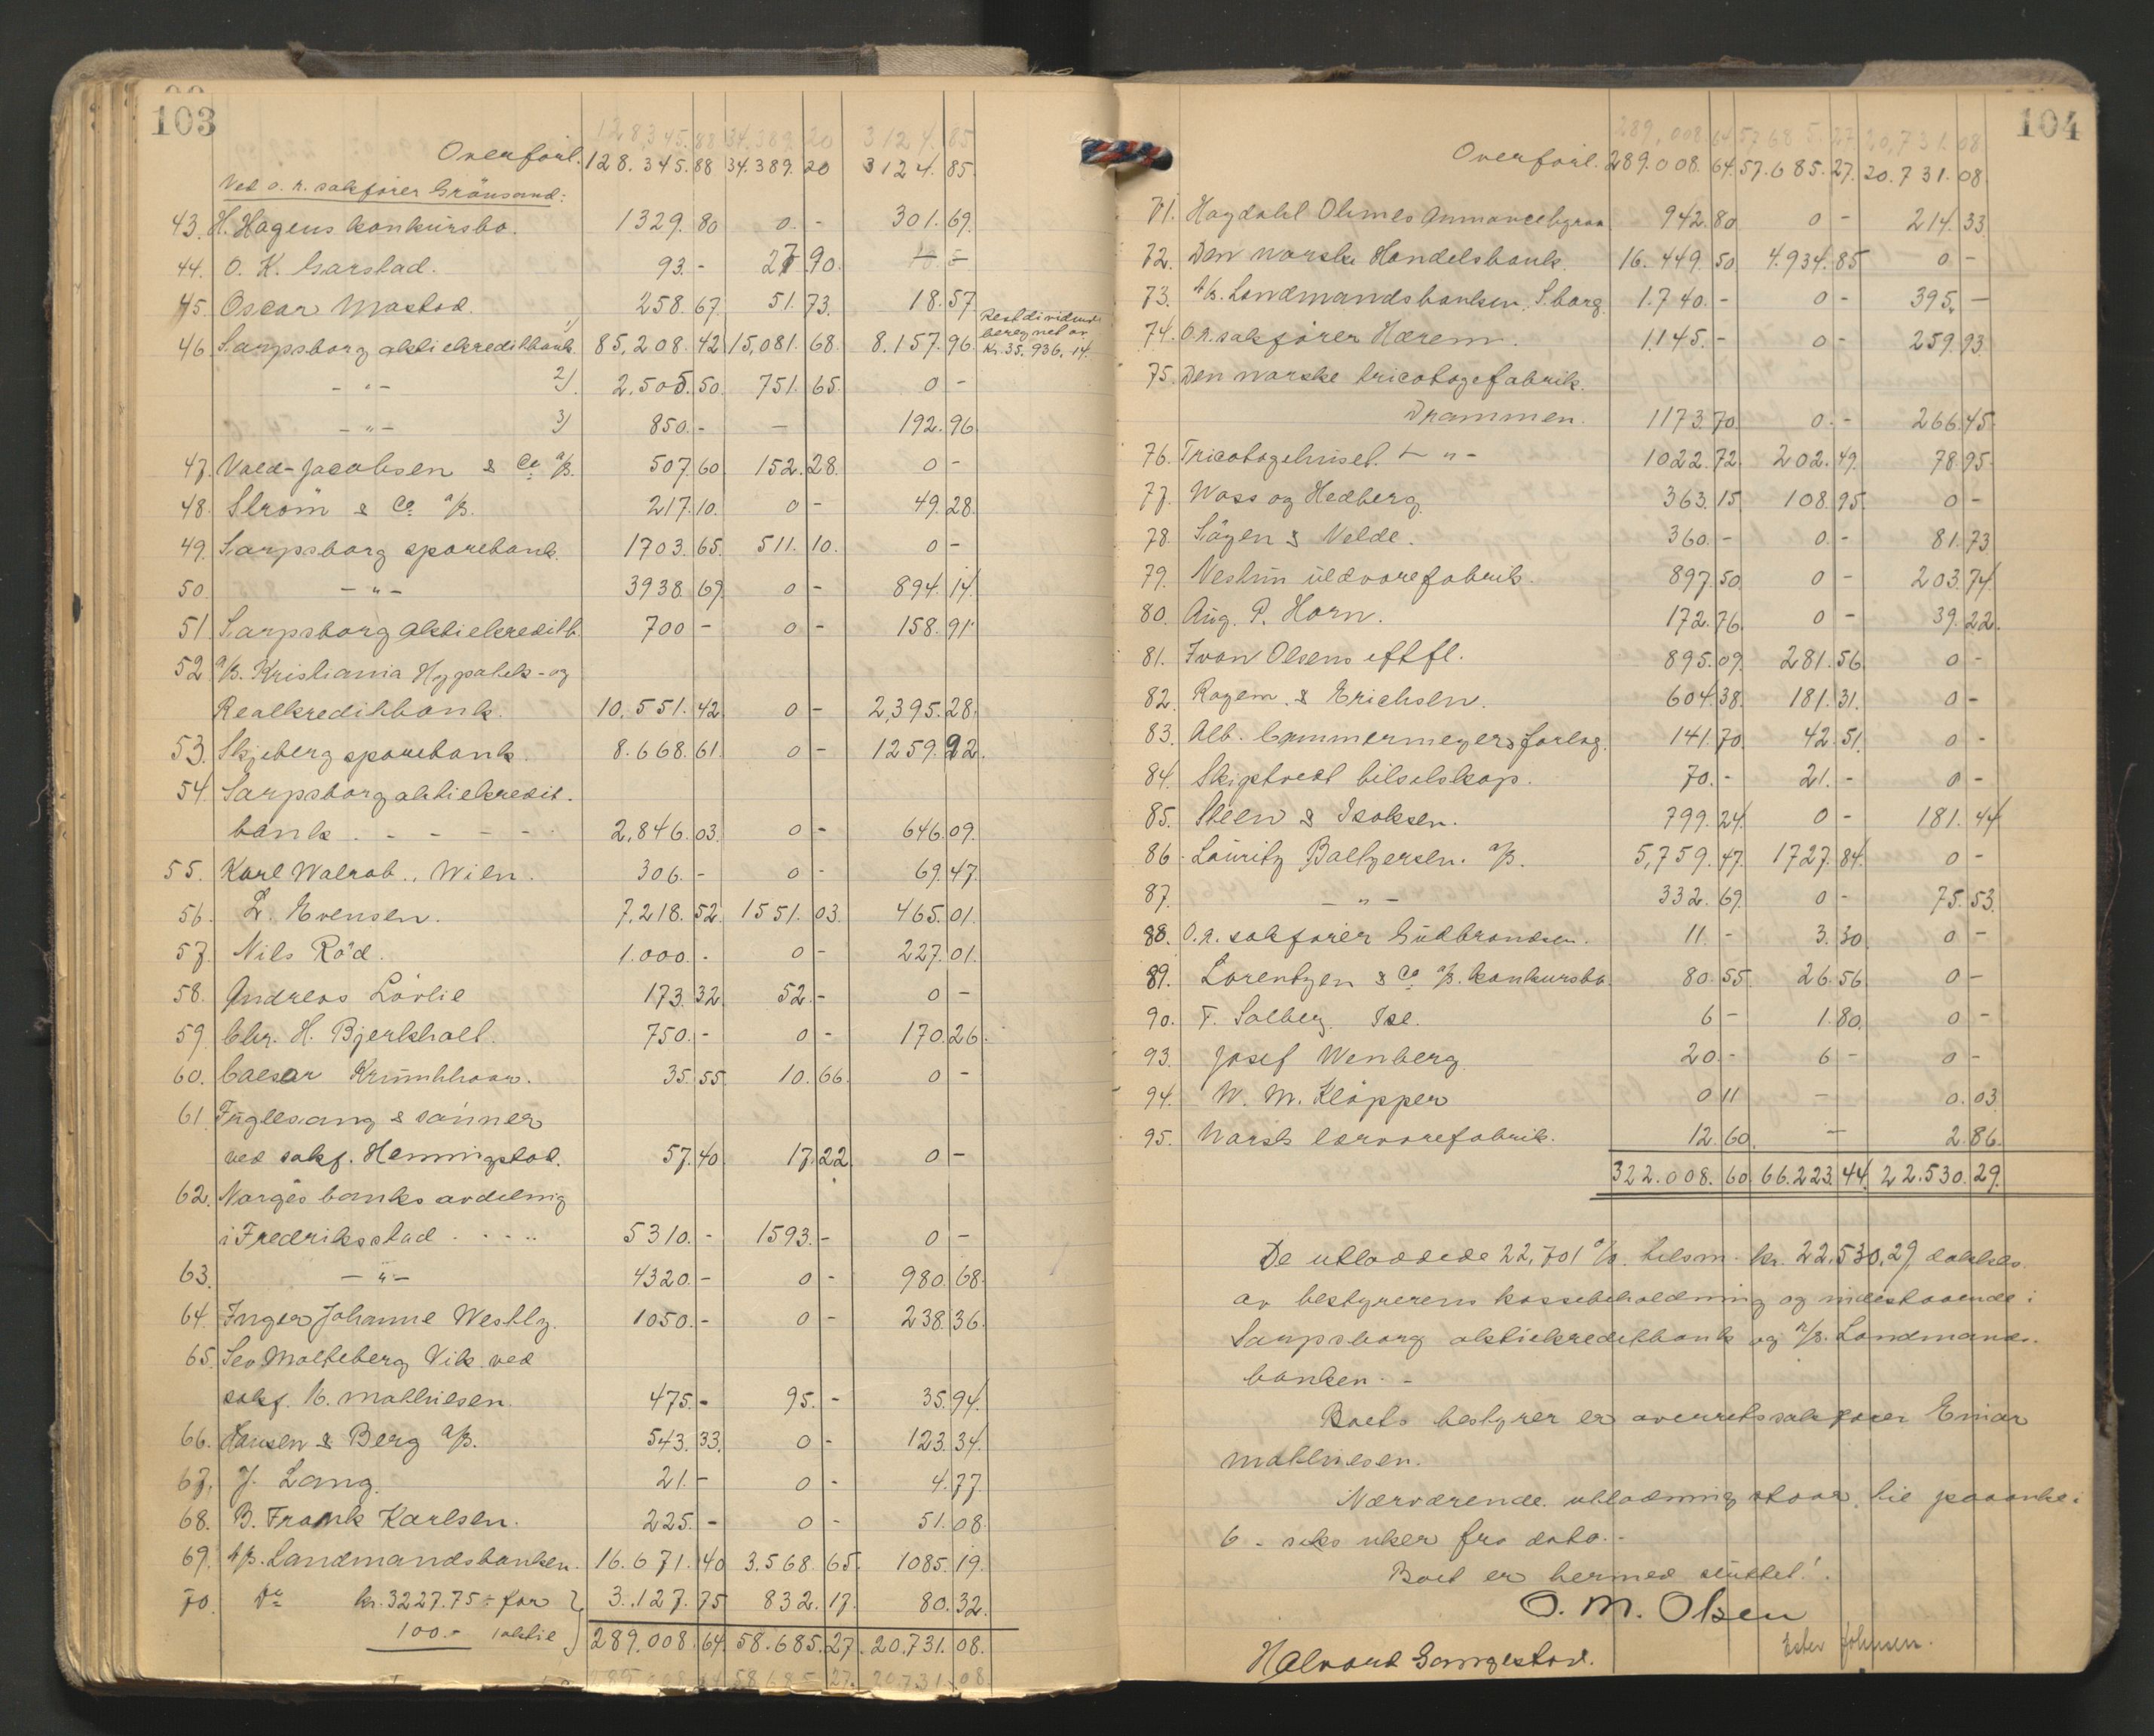 103
128,345.88 34.389.20 3124.85
Overført. 128.345.88 34.389.20 3124.85
Ved o. r. sakfører Grönsand:
43. H. Hagens konkursbo. 1329.80 0.- 301.69.
44. O. K. Garstad. 93.- 27.90. - -
45 Oscar Mastad. 258.67. 51.73. 18.57
Restdividende
beregnet av
Kr. 35.936,14.
46 Sarpsborg aktiekreditbank 1) 85,208.42 15,081.68. 8.157.96
- " - 2) 2.505.50. 751.65. 0 -
- " - 3) 850.- - 192.96
47. Vald-Jacobsen & Co A/S. 507.60 152.28. 0 -
48. Ström & Co A/S. 217.10. 0 - 49.28.
49. Sarpsborg sparebank. 1703.65. 511.10. 0 -
50. - " - 3938.69. 0 - 894.14.
51. Sarpsborg Aktiekreditb. 700 - 0 - 158.91
52 A/S. Kristiania Hypotek- og
Realkreditbank. 10.551.42 0 - 2,395.28.
53. Skjeberg sparebank. 8.668.61. 0 - 1259.92.
54. Sarpsborg aktiekredit.
bank . - - - - 2.846.03. 0 - 646.09.
55. Karl Walrab., Wien. 306.- 0 - 69.47.
56. L. Evensen. 7.218.52. 1551.03. 465.01.
57. Nils Röd. 1.000.- 0 - 227.01.
58. Andreas Lövlie 173.32. 52.- 0 -
59. Chr. H. Bjerkholt. 750.- 0 - 170.26.
60. Caesar Krumhhaar. 35.55. 10.66. 0 -
61. Fuglesang & sønner
ved sakf. Henningstad. 57.40 17.22 0 -
62. Norges banks avdeling
i Fredriksstad . . . . . 5310.- 1593.- 0 -
63. - " - 4320.- 0 - 980.68.
64. Inger Johanne Westby. 1050.- 0 - 238.36.
65. Sev Molteberg Vik ved
sakf. N. Mathiesen. 475.- 95.- 35.94.
66. Hansen & Berg A/S. 543.33. 0 - 123.34.
67. J. Lang. 21.- 0 - 4.77.
68. B. Frank Karlsen. 225.- 0 - 51.08.
69. A/S. Landmandsbanken. 16.671.40 3.568.65. 1085.19.
70. Do kr. 3227.75 ÷ for } 3.127.75 832.17. 80.32.
100.- 1 aktie } 289.008.64. 58.685.27. 20.731.08.
289.008.64 58685 27. 20.731.08.
104
289,008 64 57 68 5. 27 20,731.08
Overført. 289.008.64. 57.685.27. 20.731.08.
71. Hagdahl Ohmes Annoncebyraa 942.80 0 - 214.33.
72. Den norske Handelsbank. 16.449.50 4.934.85 0 -
73. A/S. Landmandsbanken, S.borg. 1.740.- 0 - 395. -
74. O.r. sakfører Hærem. 1.145.- 0 - 259.93.
75. Den norske tricotagefabrik.
Drammen. 1173.70. 0.- 266.45.
76. Tricotagehuset. - " - 1022.72. 202.49. 78.95.
77. Wass og Hedberg. 363.15. 108.95. 0 -
78. Söyen & Velde. 360.- 0.- 81.73
79. Nestun uldvarefabrik. 897.50. 0 - 203.74.
80. Aug. P. Horn. 172.76. 0 - 39.22.
81. Ivan Olsens eftfl. 895.09. 281.56. 0 -
82. Ragem & Erichsen. 604.38. 181.31. 0 -
83. Alb. Cammermeyers forlag. 141.70. 42.51. 0 -
84. Skiptvedt bilselskap. 70.- 21.- 0 -
85. Steen & Isaksen. 799.24. 0 - 181.44
86. Lauritz Baltzersen. A/S. 5,759.47. 1727.84. 0 -
87. - " - 332.69. 0 - 75.53.
88. O.r. sakfører Gudbrandsen. 11.- 3.30. 0 -
89. Lorentzen & Co A/S. konkursbo. 80.55. 26.56. 0 -
90. T. Solberg. Ise. 6 - 1.80. 0 -
93. Josef Wenberg 20.- 6 - 0 -
94. W. M. Kløpper 0 11 - 0.03
95. Norsk lærvarefabrik. 12.60. - 2.86.
322.008.60. 66.223.44. 22.530.29.
De utlodede 22,701 %. tilsm. kr. 22.530,29, dækkes
av bestyrerens kassebeholdning og indestaaende i
Sarpsborg aktiekreditbank og A/S. Landmands-
banken. -
Boets bestyrer er overretssakfører Einar
Mathiesen.
Nærværende utlodning staar til paaanke i
6 - seks uker fra dato. -
Boet er hermed sluttet!.
O. M. Olsen
Ester Johnsen.
Halvard Gangestad.